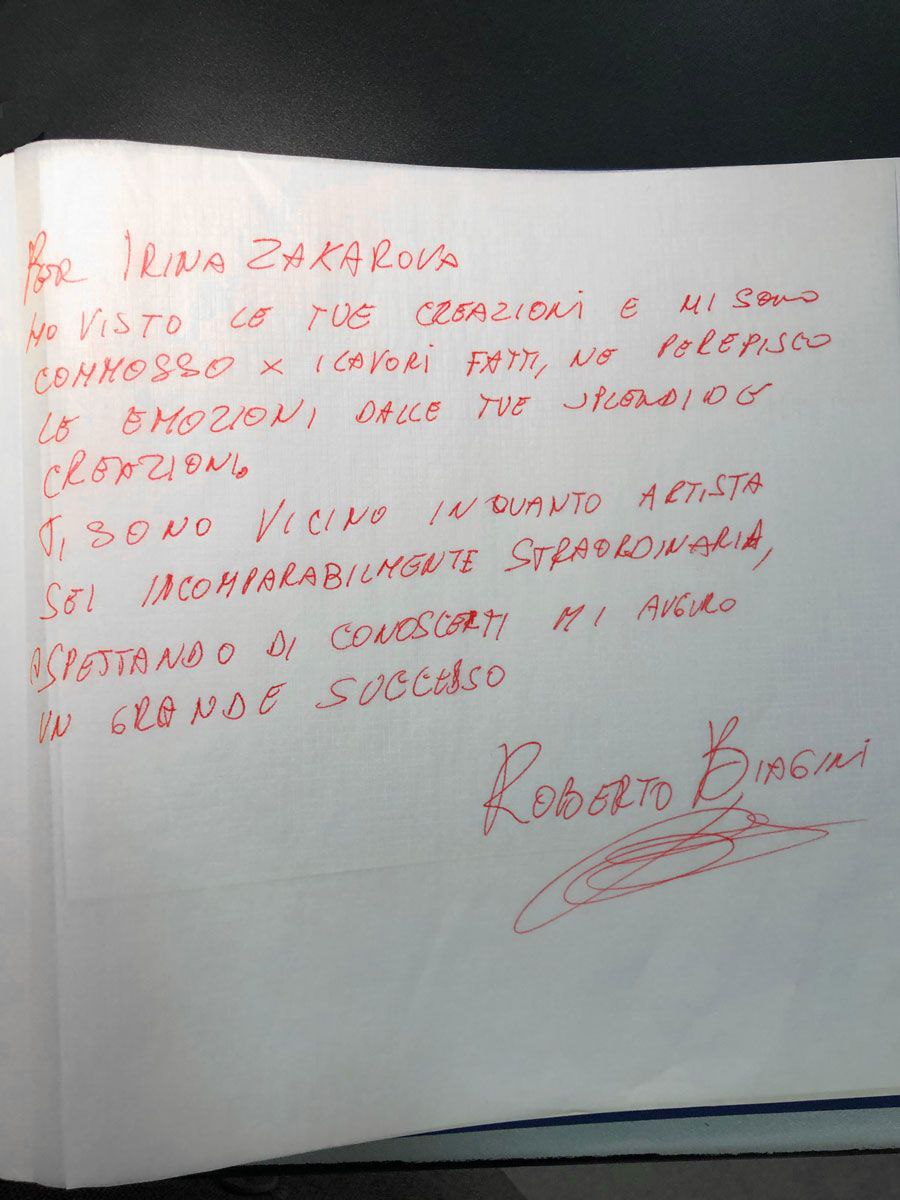 PER IRINA ZAKAROVA
HO VISTO LE TUE CREAZIONI E MI SONO
COMMOSSO X I LAVORI FATTI, NE PEREPISCO
LE EMOZIONI DALLE TUE SPLENDIDE
CREAZIONI.
TI SONO VICINO INQUANTO ARTISTA
SEI INCOMPARABILMENTE STRAORDINARIA,
ASPETTANDO DI CONOSCERTI MI AUGURO
UN GRANDE SUCCESSO
ROBERTO BIAGINI